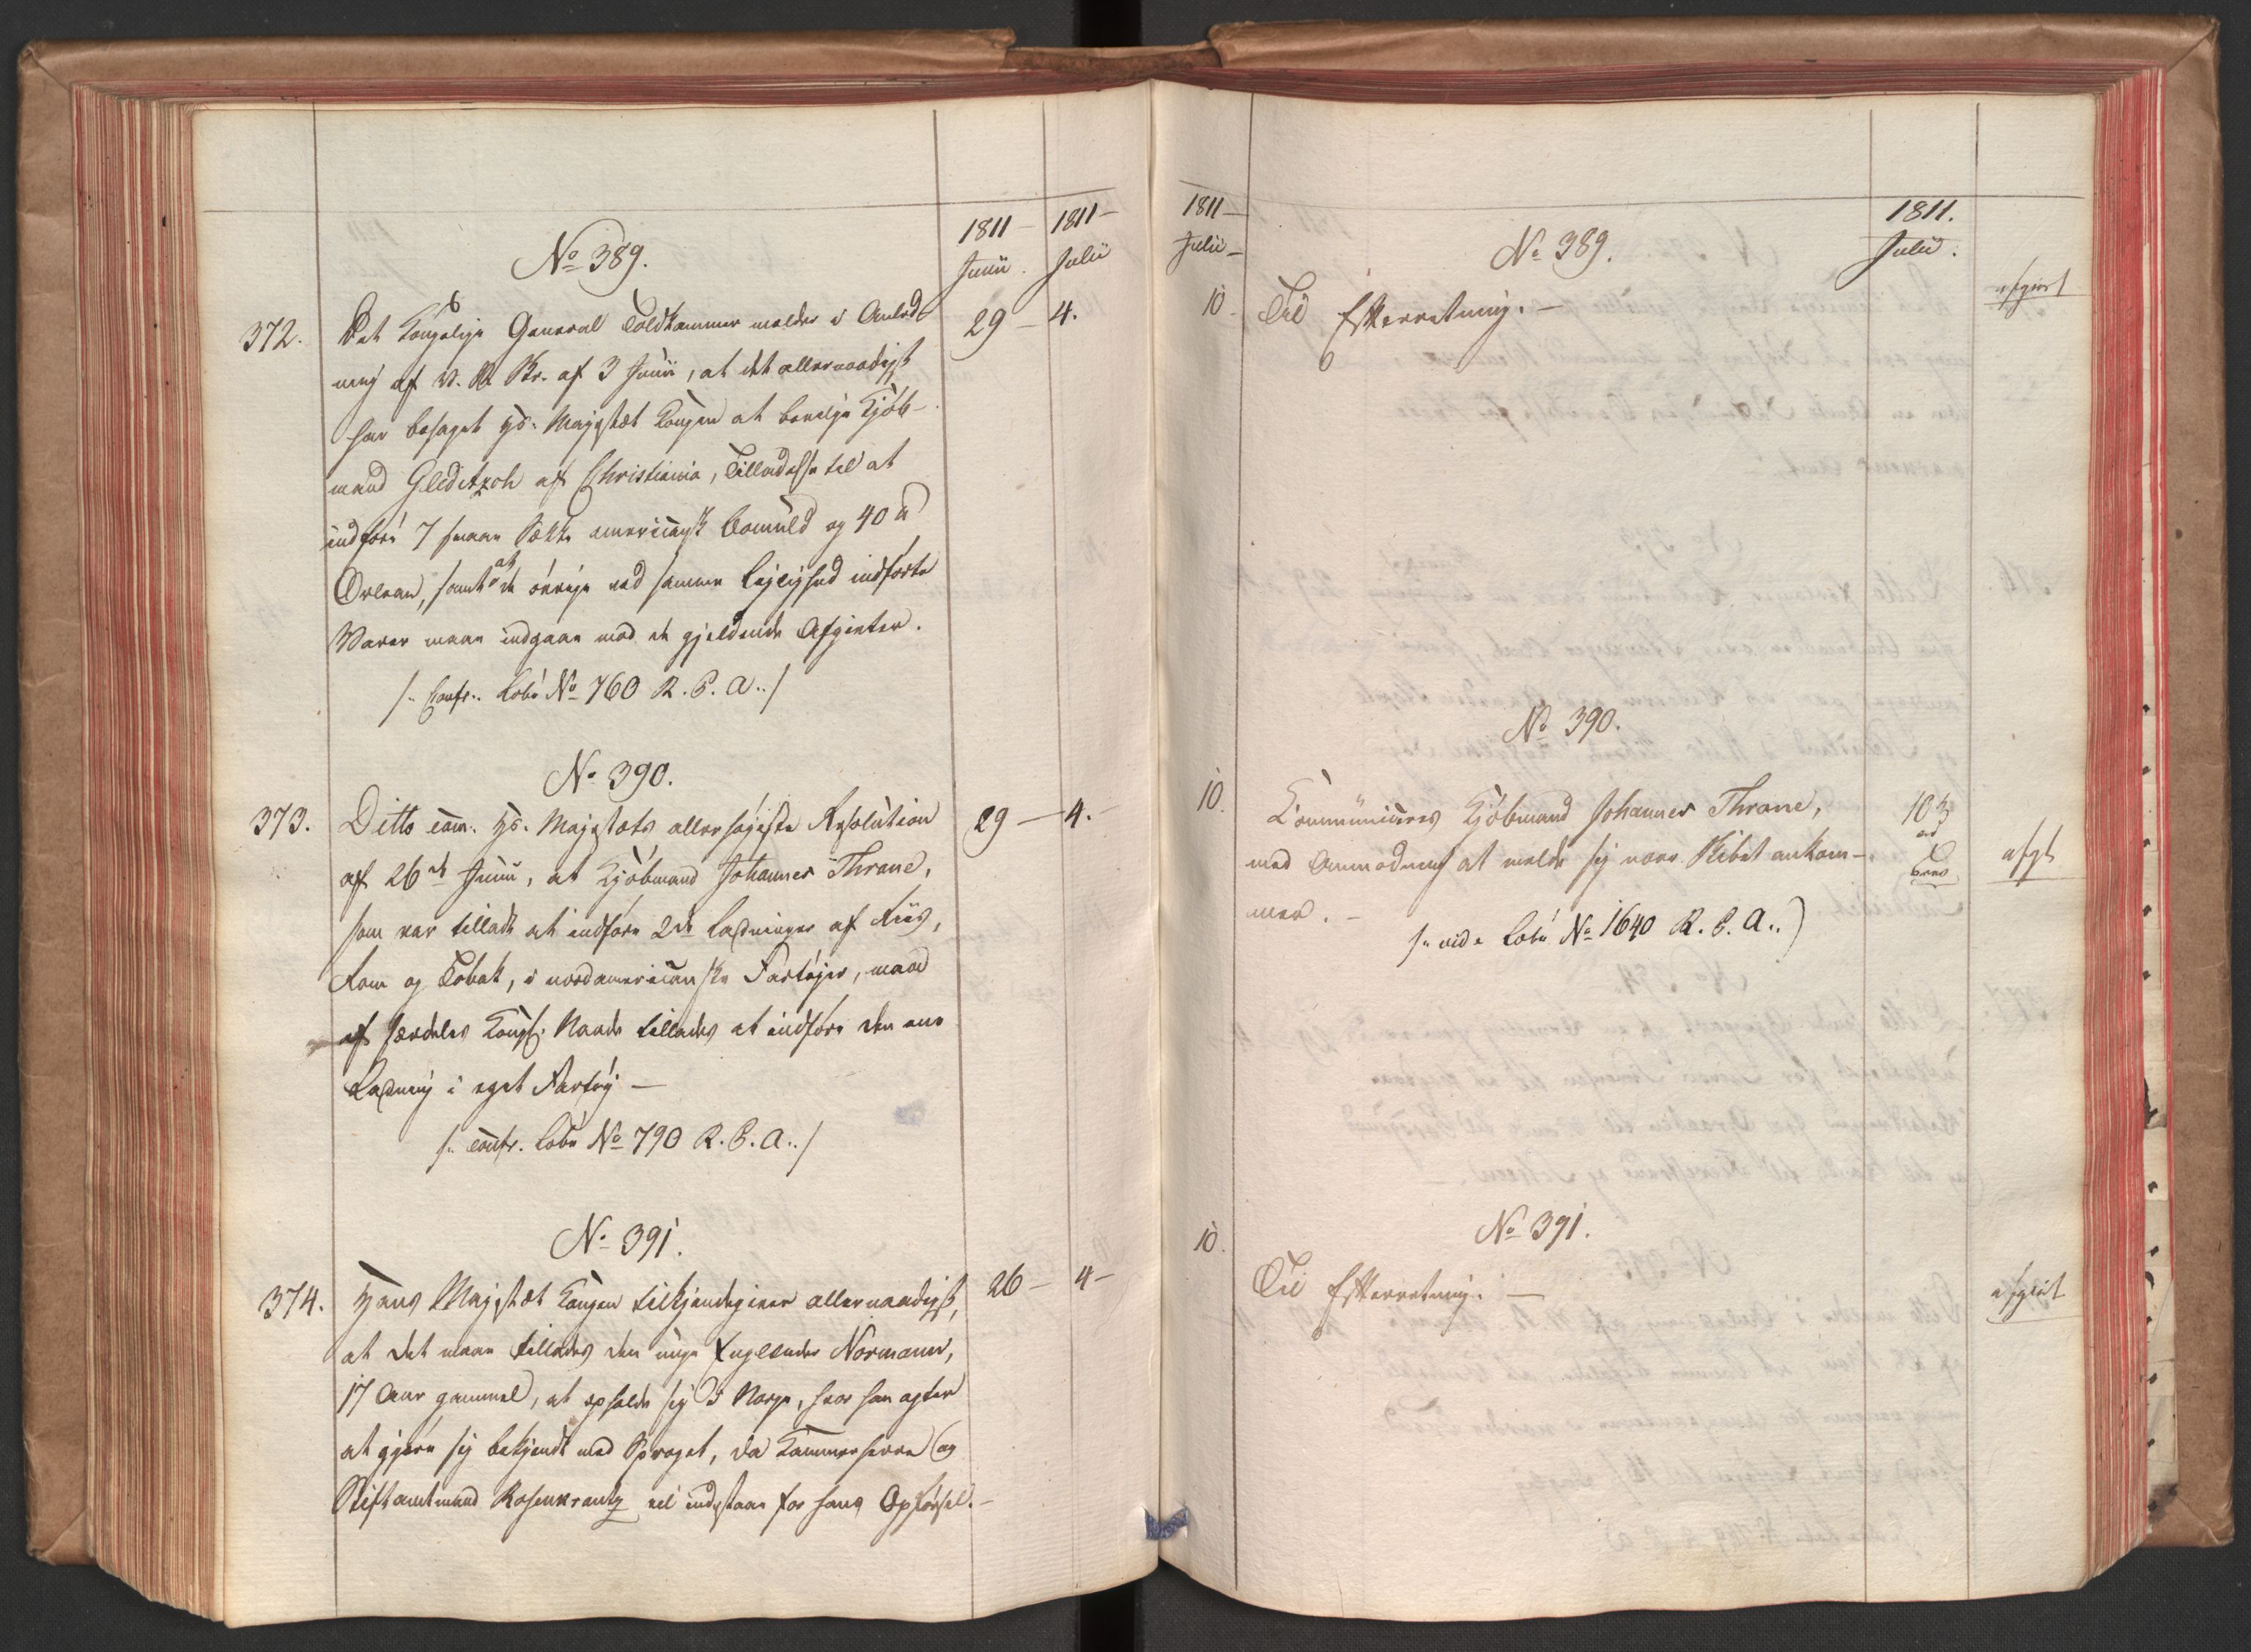 1811 – 1811 –
Junii. Julii
No 389.
372. Det Kongelige General Toldkammer melder i Anled- 29 – 4.
ning af V. R. Br. af 3 Junii, at det allernaadigst
har behaget Hs. Majestæt Kongen at bevilge Kjöb-
mand Gleditzch af Christiania, Tilladelse til at
indföre 7 smaae Sække americansk Bomuld og 40 ℔
Orlean, samt at de övrige ved samme Lejlighed indförte
Varer maae indgaae mod de gjeldende Afgivter.
/: Confr. Lobe No 760 R. C. A. :/
No 390.
373. Ditto com: Hs. Majestæts allerhöjeste Resolution 29 – 4. –
af 26de Junii, at Kjöbmand Johannes Thrane,
som var tilladt at indföre 2de Ladninger af Riis,
Rom og Tobak, i nordamericanske Fartöjer, maae
af særdeles Kongel. Naade tillades at indföre den ene
Ladning i eget Fartöj –
/: confr. Lobe No 790 R. C. A. :/
No 391.
374. Hans Majestæt Kongen tilkjendegiver allernaadigst, 26 – 4 –
at det maae tillades den unge Englænder Normann,
17 Aar gammel, at opholde sig i Norge, hvor han agter
at gjöre sig bekjendt med Sproget, da Kammerherre og
Stiftamtmand Rosenkrantz vil indestaae for hans Opförsel. –
1811 –
Julii –
1811.
Julii.
No 389.
10. Til Efterretning. – afgiort
No 390.
10. Communiceres Kjöbmand Johannes Thrane, 103
med Anmodning at melde sig naar Skibet ankom- afgt
mer. –
/: vide Lobe No 1640 R. C. A. :/
No 391.
10. Til Efterretning. – afgiort